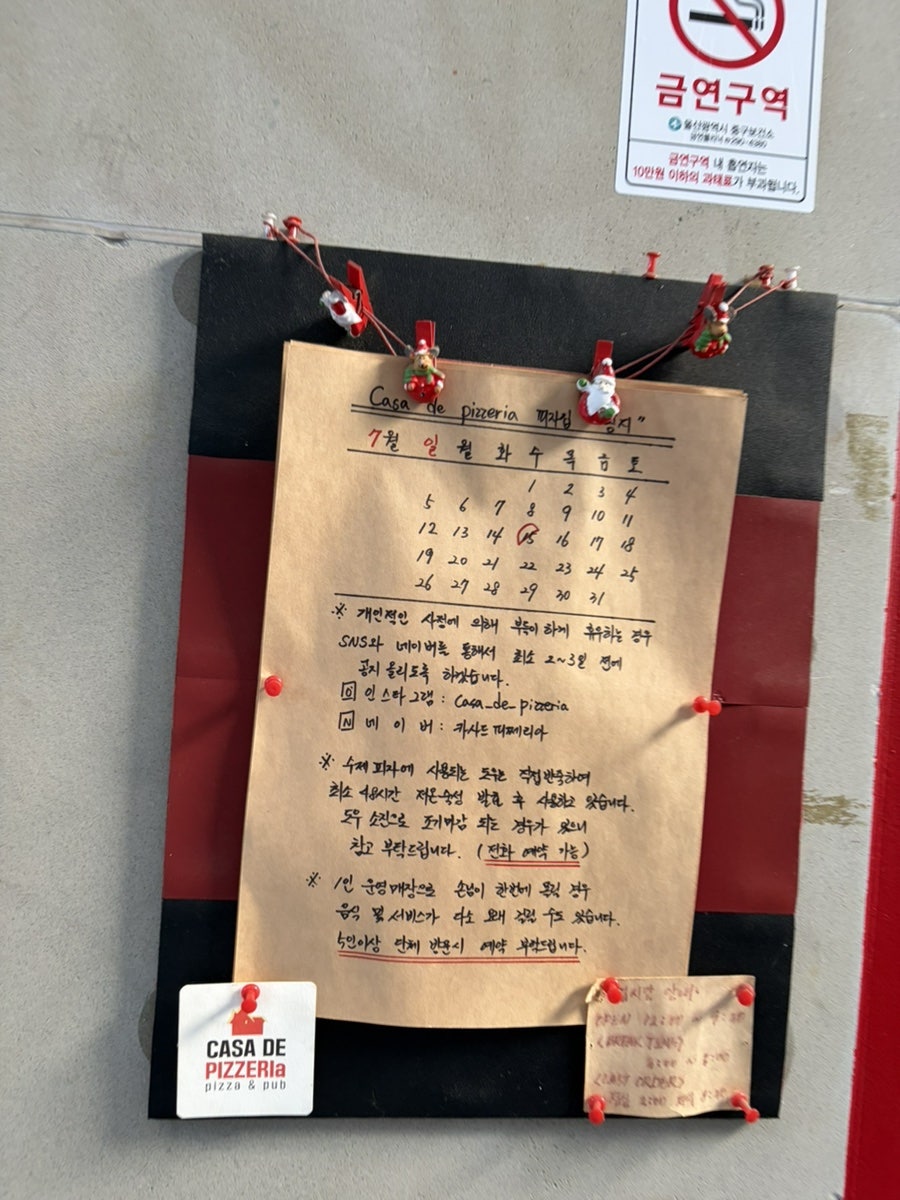 금연구역
울산광역시 중구보건소
금연구역 내 흡연자는
10만원 이하의 과태료가 부과됩니다.
Casa de pizzeria 피자집 지"
7월 일 월 화 수 목 금 토
1 2 3 4
5 6 7 8 9 10 11
12 13 14 15 16 17 18
19 20 21 22 23 24 25
26 27 28 29 30 31
※ 개인적인 사정에 의해 부득이하게 휴무하는 경우
SNS와 네이버를 통해서 최소 2~3일 전에
공지 올리도록 하겠습니다.
인스타그램 : Casa_de_pizzeria
N 네 이 버 : 카사드피제리아
※ 수제 피자에 사용되는 도우는 직접반죽하여
최소 48시간 저온숙성 발효 후 사용하고 있습니다.
도우 소진으로 조기마감 되는 경우가 있으니
참고 부탁드립니다. (전화 예약 가능)
※ 1인 운영매장으로 손님이 한번에 몰릴 경우
음식 및 서비스가 다소 오래 걸릴 수도 있습니다.
5인이상 단체 방문시 예약 부탁드립니다.
CASA DE
PIZZERIa
pizza & pub
시간 안내
OPEN 12:00 ~
(BREAK TIME)
(LAST ORDER)